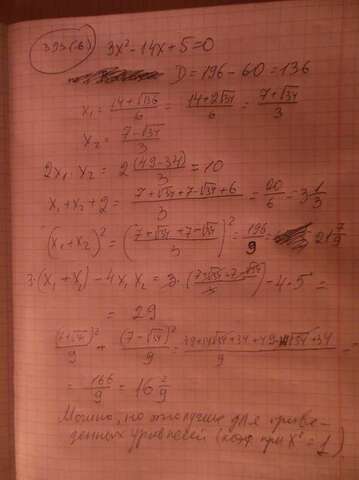 393(б) 3x² - 14x + 5 = 0
D = 196 - 60 = 136
x₁ = (14 + √136)/6 = (14 + 2√34)/6 = (7 + √34)/3
x₂ = (7 - √34)/3
2x₁·x₂ = 2(49 - 34)/3 = 10
x₁ + x₂ + 2 = (7 + √34 + 7 - √34 + 6)/3 = 20/6 = 3 1/3
(x₁ + x₂)² = ((7 + √34 + 7 - √34)/3)² = 196/9 21 7/9
3·(x₁ + x₂) - 4x₁x₂ = 3·(7 + √34 + 7 - √34)/3 - 4·5 =
= 29
(7 + √34)²/9 + (7 - √34)²/9 = + 34 + 49 - 14√34 + 34/9 =
= 166/9 = 16 2/9
Можно, но это лучше для приве-
денных уравнений (коэф при x² = 1)